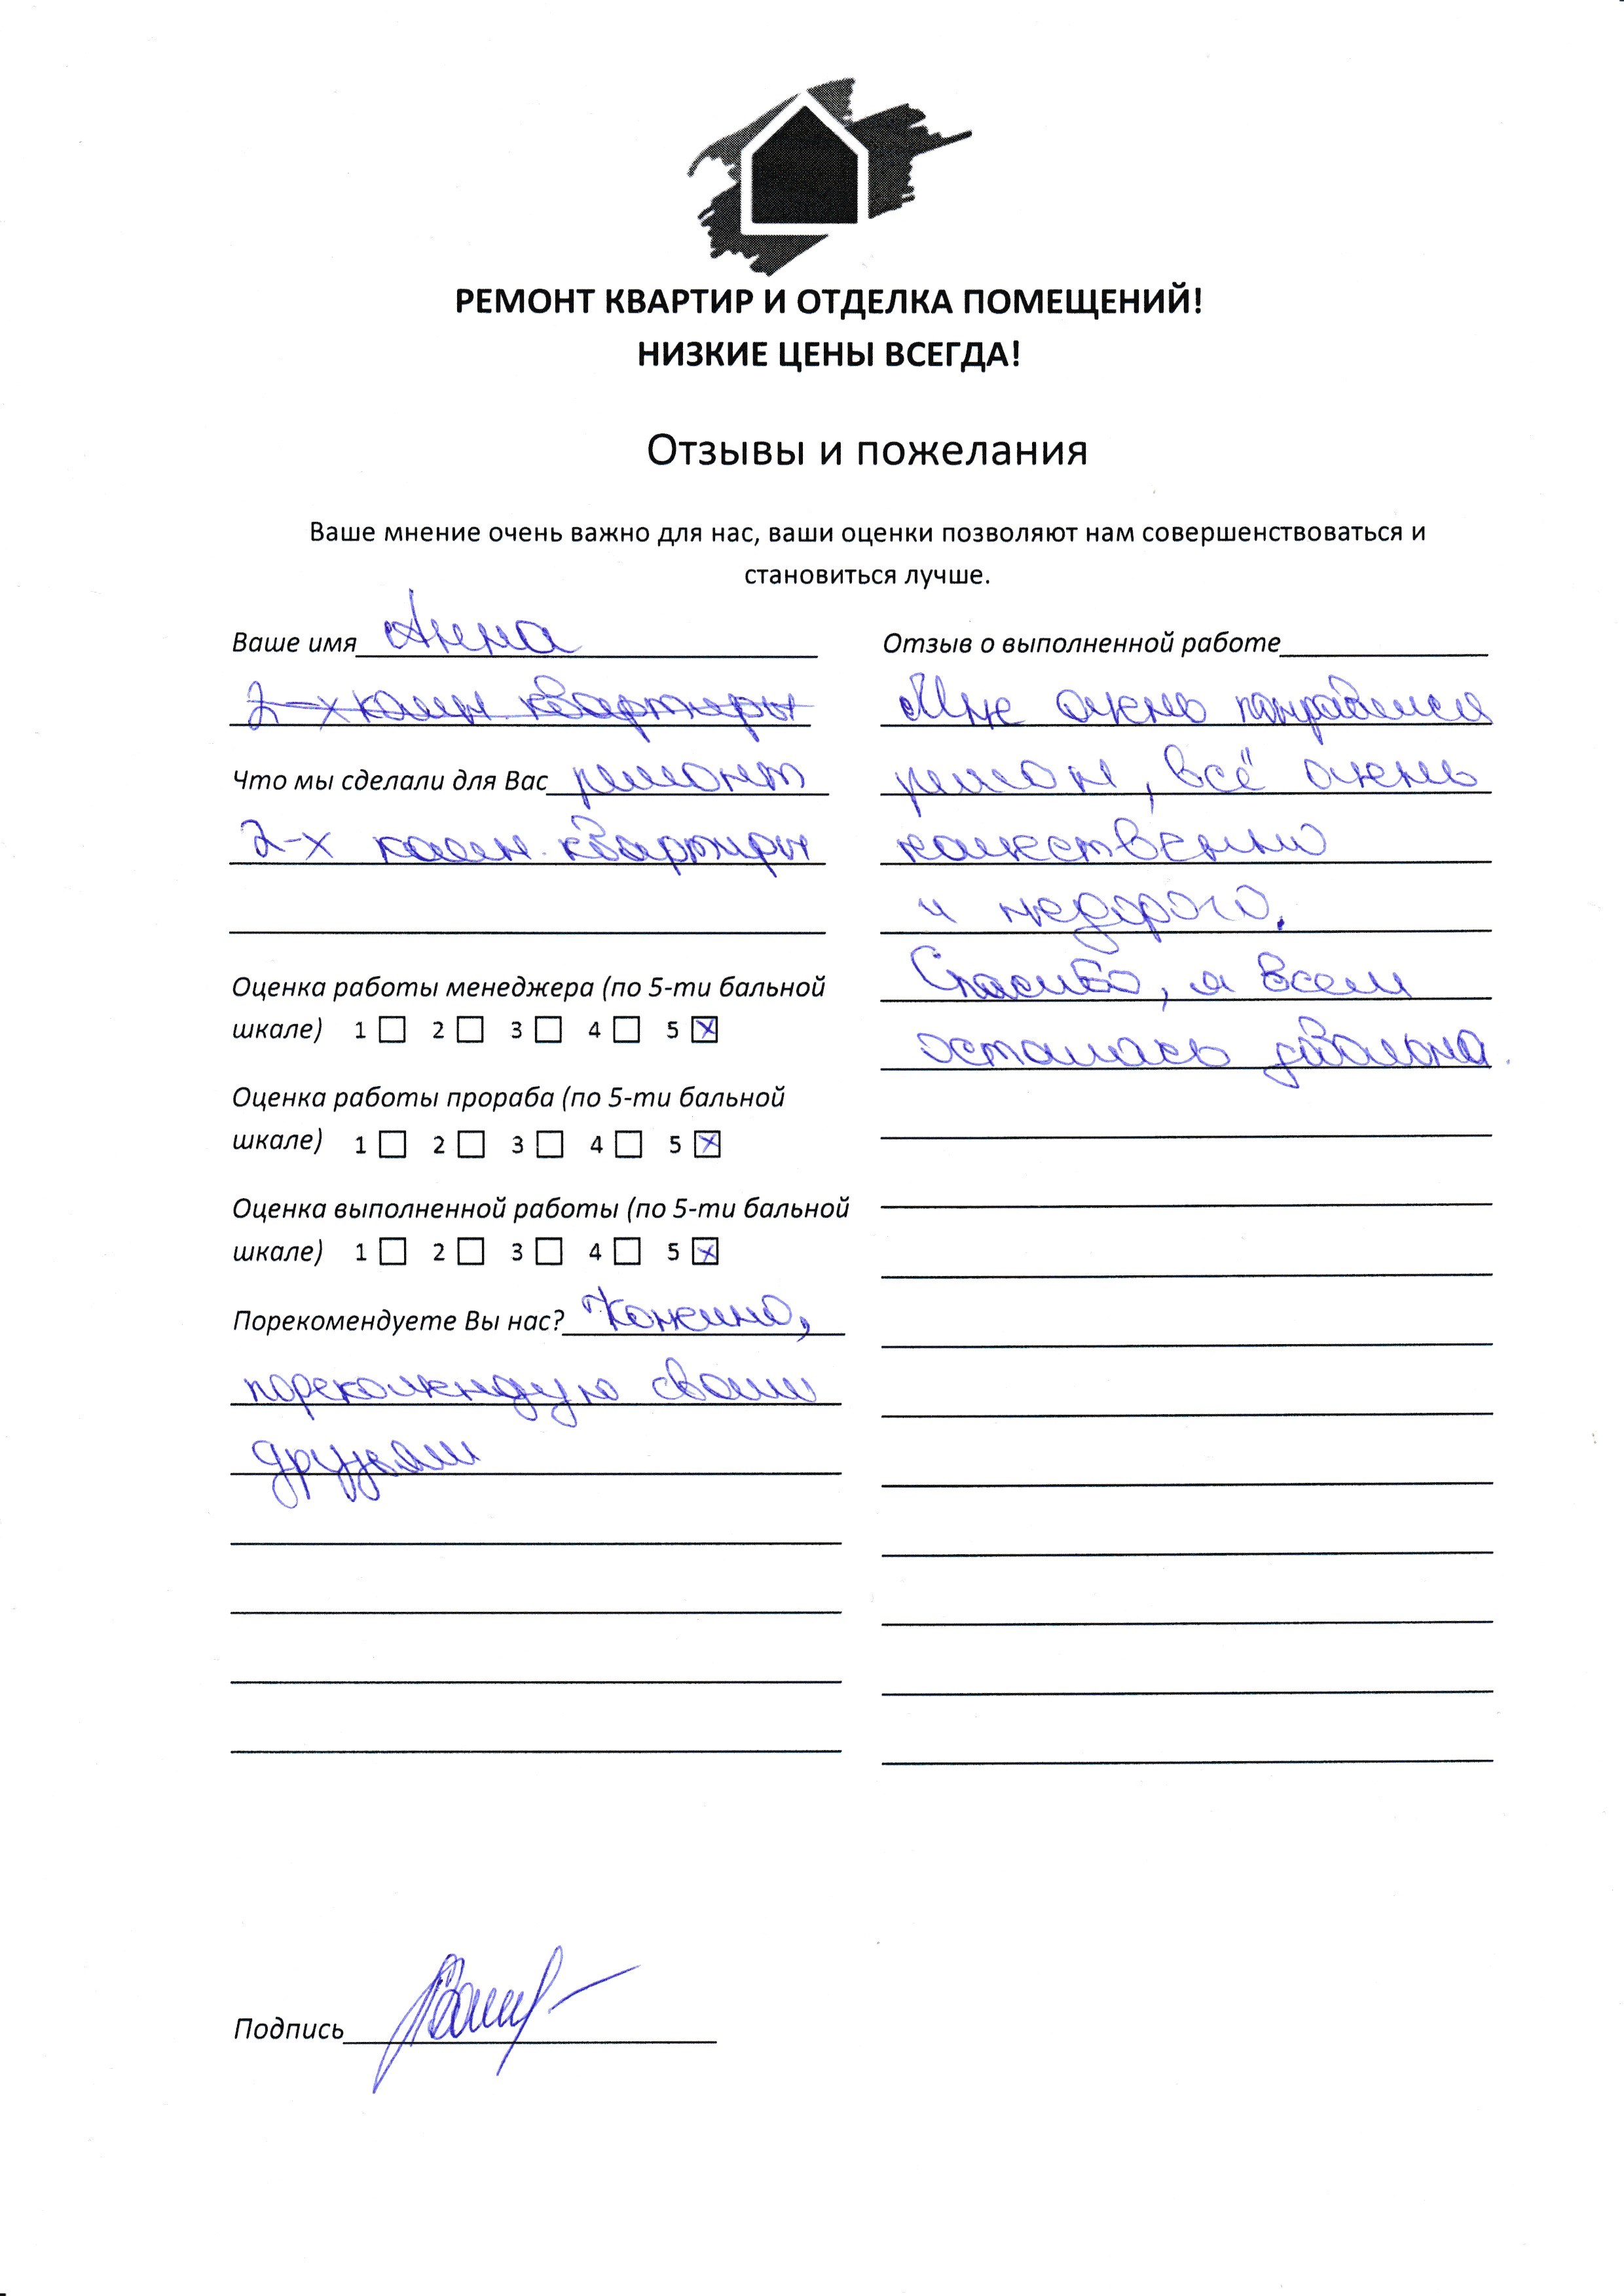 РЕМОНТ КВАРТИР И ОТДЕЛКА ПОМЕЩЕНИЙ!
НИЗКИЕ ЦЕНЫ ВСЕГДА!
Отзывы и пожелания
Ваше мнение очень важно для нас, ваши оценки позволяют нам совершенствоваться и
становиться лучше.
Ваше имя Анна
2-х комн. квартиры
Что мы сделали для Вас ремонт
2-х комн. квартиры
Оценка работы менеджера (по 5-ти бальной
шкале) 1 2 3 4 5
Оценка работы прораба (по 5-ти бальной
шкале) 1 2 3 4 5
Оценка выполненной работы (по 5-ти бальной
шкале) 1 2 3 4 5
Порекомендуете Вы нас? Конечно,
порекомендую своим
друзьям
Отзыв о выполненной работе
Мне очень понравился
ремон, всё очень
качественно
и недорого.
Спасибо, я всем
осталась довольна.
Подпись